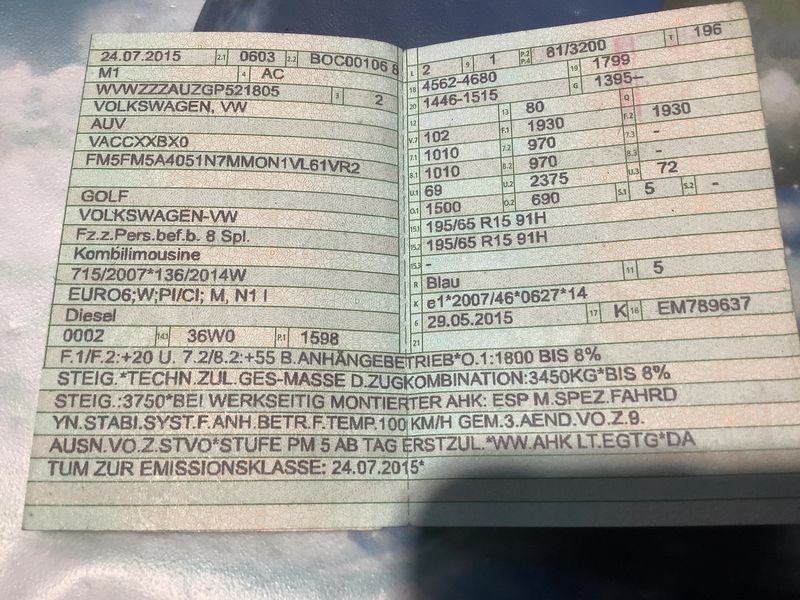 24.07.2015 2.1 0603 2.2 BOC00106 8
M1 4 AC
WVWZZZAUZGP521805 3 2
VOLKSWAGEN, VW
AUV
VACCXXBX0
FM5FM5A4051N7MMON1VL61VR2
GOLF
VOLKSWAGEN-VW
Fz.z.Pers.bef.b. 8 Spl.
Kombilimousine
715/2007*136/2014W
EURO6;W;PI/CI; M, N1 I
Diesel
0002 14.1 36W0 P.1 1598
L 2 9 1 P.2 P.4 81/3200 T 196
18 4562-4680 19 1799
20 1446-1515 G 1395–
12 13 80 Q
V.7 102 F.1 1930 F.2 1930
7.1 1010 7.2 970 7.3 -
8.1 1010 8.2 970 8.3 -
U.1 69 U.2 2375 U.3 72
O.1 1500 O.2 690 S.1 5 S.2 -
15.1 195/65 R15 91H
15.2 195/65 R15 91H
15.3 -
R Blau 11 5
K e1*2007/46*0627*14
6 29.05.2015 17 K 16 EM789637
21
F.1/F.2:+20 U. 7.2/8.2:+55 B.ANHÄNGEBETRIEB*O.1:1800 BIS 8%
STEIG.*TECHN.ZUL.GES-MASSE D.ZUGKOMBINATION:3450KG*BIS 8%
STEIG.:3750*BEI WERKSEITIG MONTIERTER AHK: ESP M.SPEZ.FAHRD
YN.STABI.SYST.F.ANH.BETR.F.TEMP.100 KM/H GEM.3.AEND.VO.Z.9.
AUSN.VO.Z.STVO*STUFE PM 5 AB TAG ERSTZUL.*WW.AHK LT.EGTG*DA
TUM ZUR EMISSIONSKLASSE: 24.07.2015*